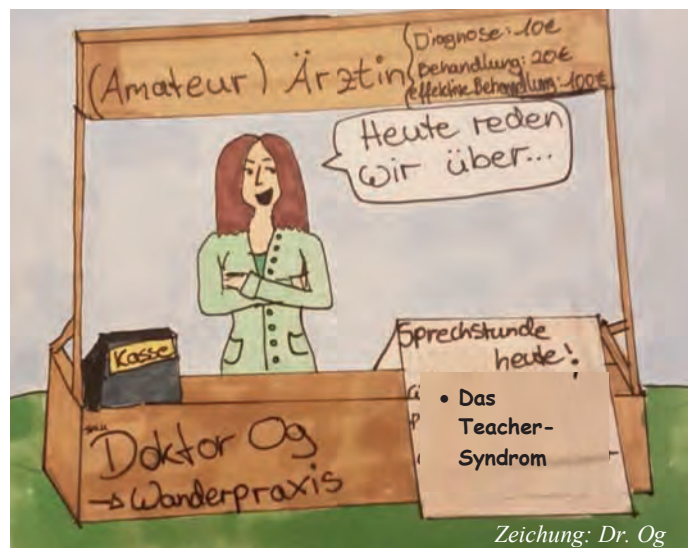 (Amateur) Ärztin
Diagnose: 10€
Behandlung: 20€
effektive Behandlung: 100€
Heute reden
wir über...
Kasse
Sprechstunde
heute!
• Das
Teacher-
Syndrom
Doktor Og
→ Wanderpraxis
Zeichung: Dr. Og